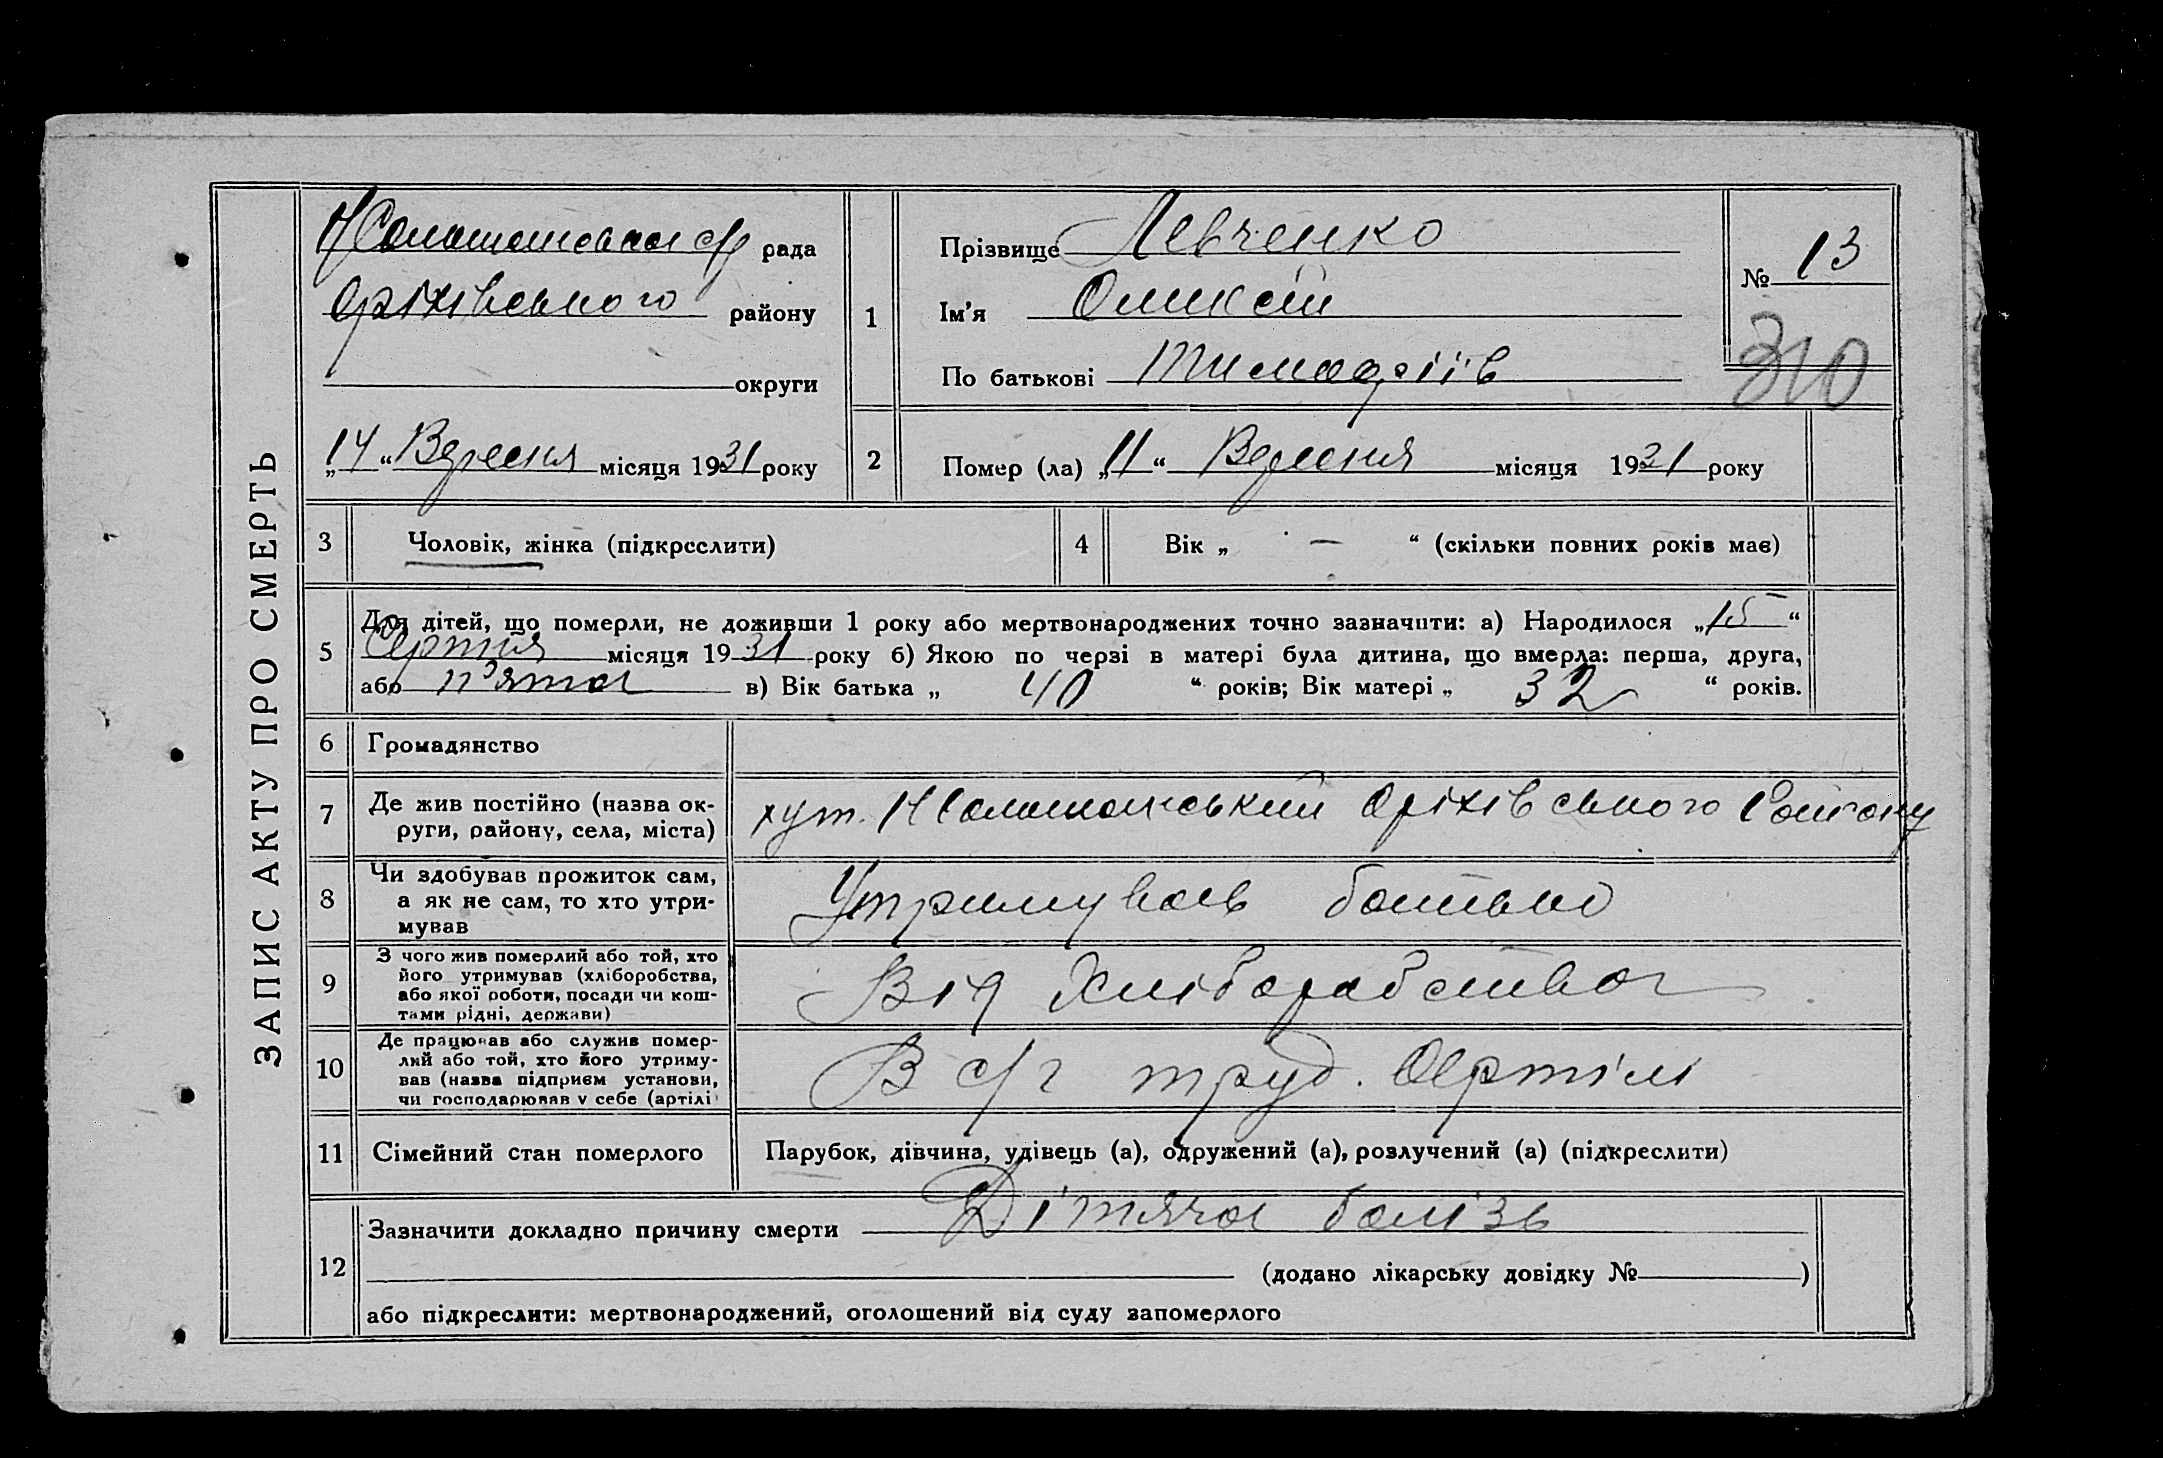 ЗАПИС АКТУ ПРО СМЕРТЬ
рада
Оріхівського району
округи
„14“ Вересня місяця 1931 року
1
Прізвище Левченко
Ім'я Оликсій
По батькові
№ 13
310
2 Помер (ла) „11“ Вересня місяця 1931 року
3 Чоловік, жінка (підкреслити)
4 Вік „ — “ (скільки повних років має)
5 Для дітей, що померли, не доживши 1 року або мертвонароджених точно зазначити: а) Народилося „15“
Серпня місяця 1931 року б) Якою по черзі в матері була дитина, що вмерла: перша, друга,
або п'ята в) Вік батька „ 40 “ років; Вік матері „ 32 “ років.
6 Громадянство
7 Де жив постійно (назва ок-
руги, району, села, міста)
хут. Оріхівського Району
8 Чи здобував прожиток сам,
а як не сам, то хто утри-
мував
Утримував батько
9 З чого жив померлий або той, хто
його утримував (хліборобства,
або якої роботи, посади чи кош-
тами рідні, держави)
Від Хліборобства
10 Де працював або служив помер-
лий або той, хто його утриму-
вав (назва підприєм установи,
чи господарював у себе (артілі)
В с/г труд. Артілі
11 Сімейний стан померлого
Парубок, дівчина, удівець (а), одружений (а), розлучений (а) (підкреслити)
12 Зазначити докладно причину смерти Дітяча болізь
(додано лікарську довідку № )
або підкреслити: мертвонароджений, оголошений від суду запомерлого